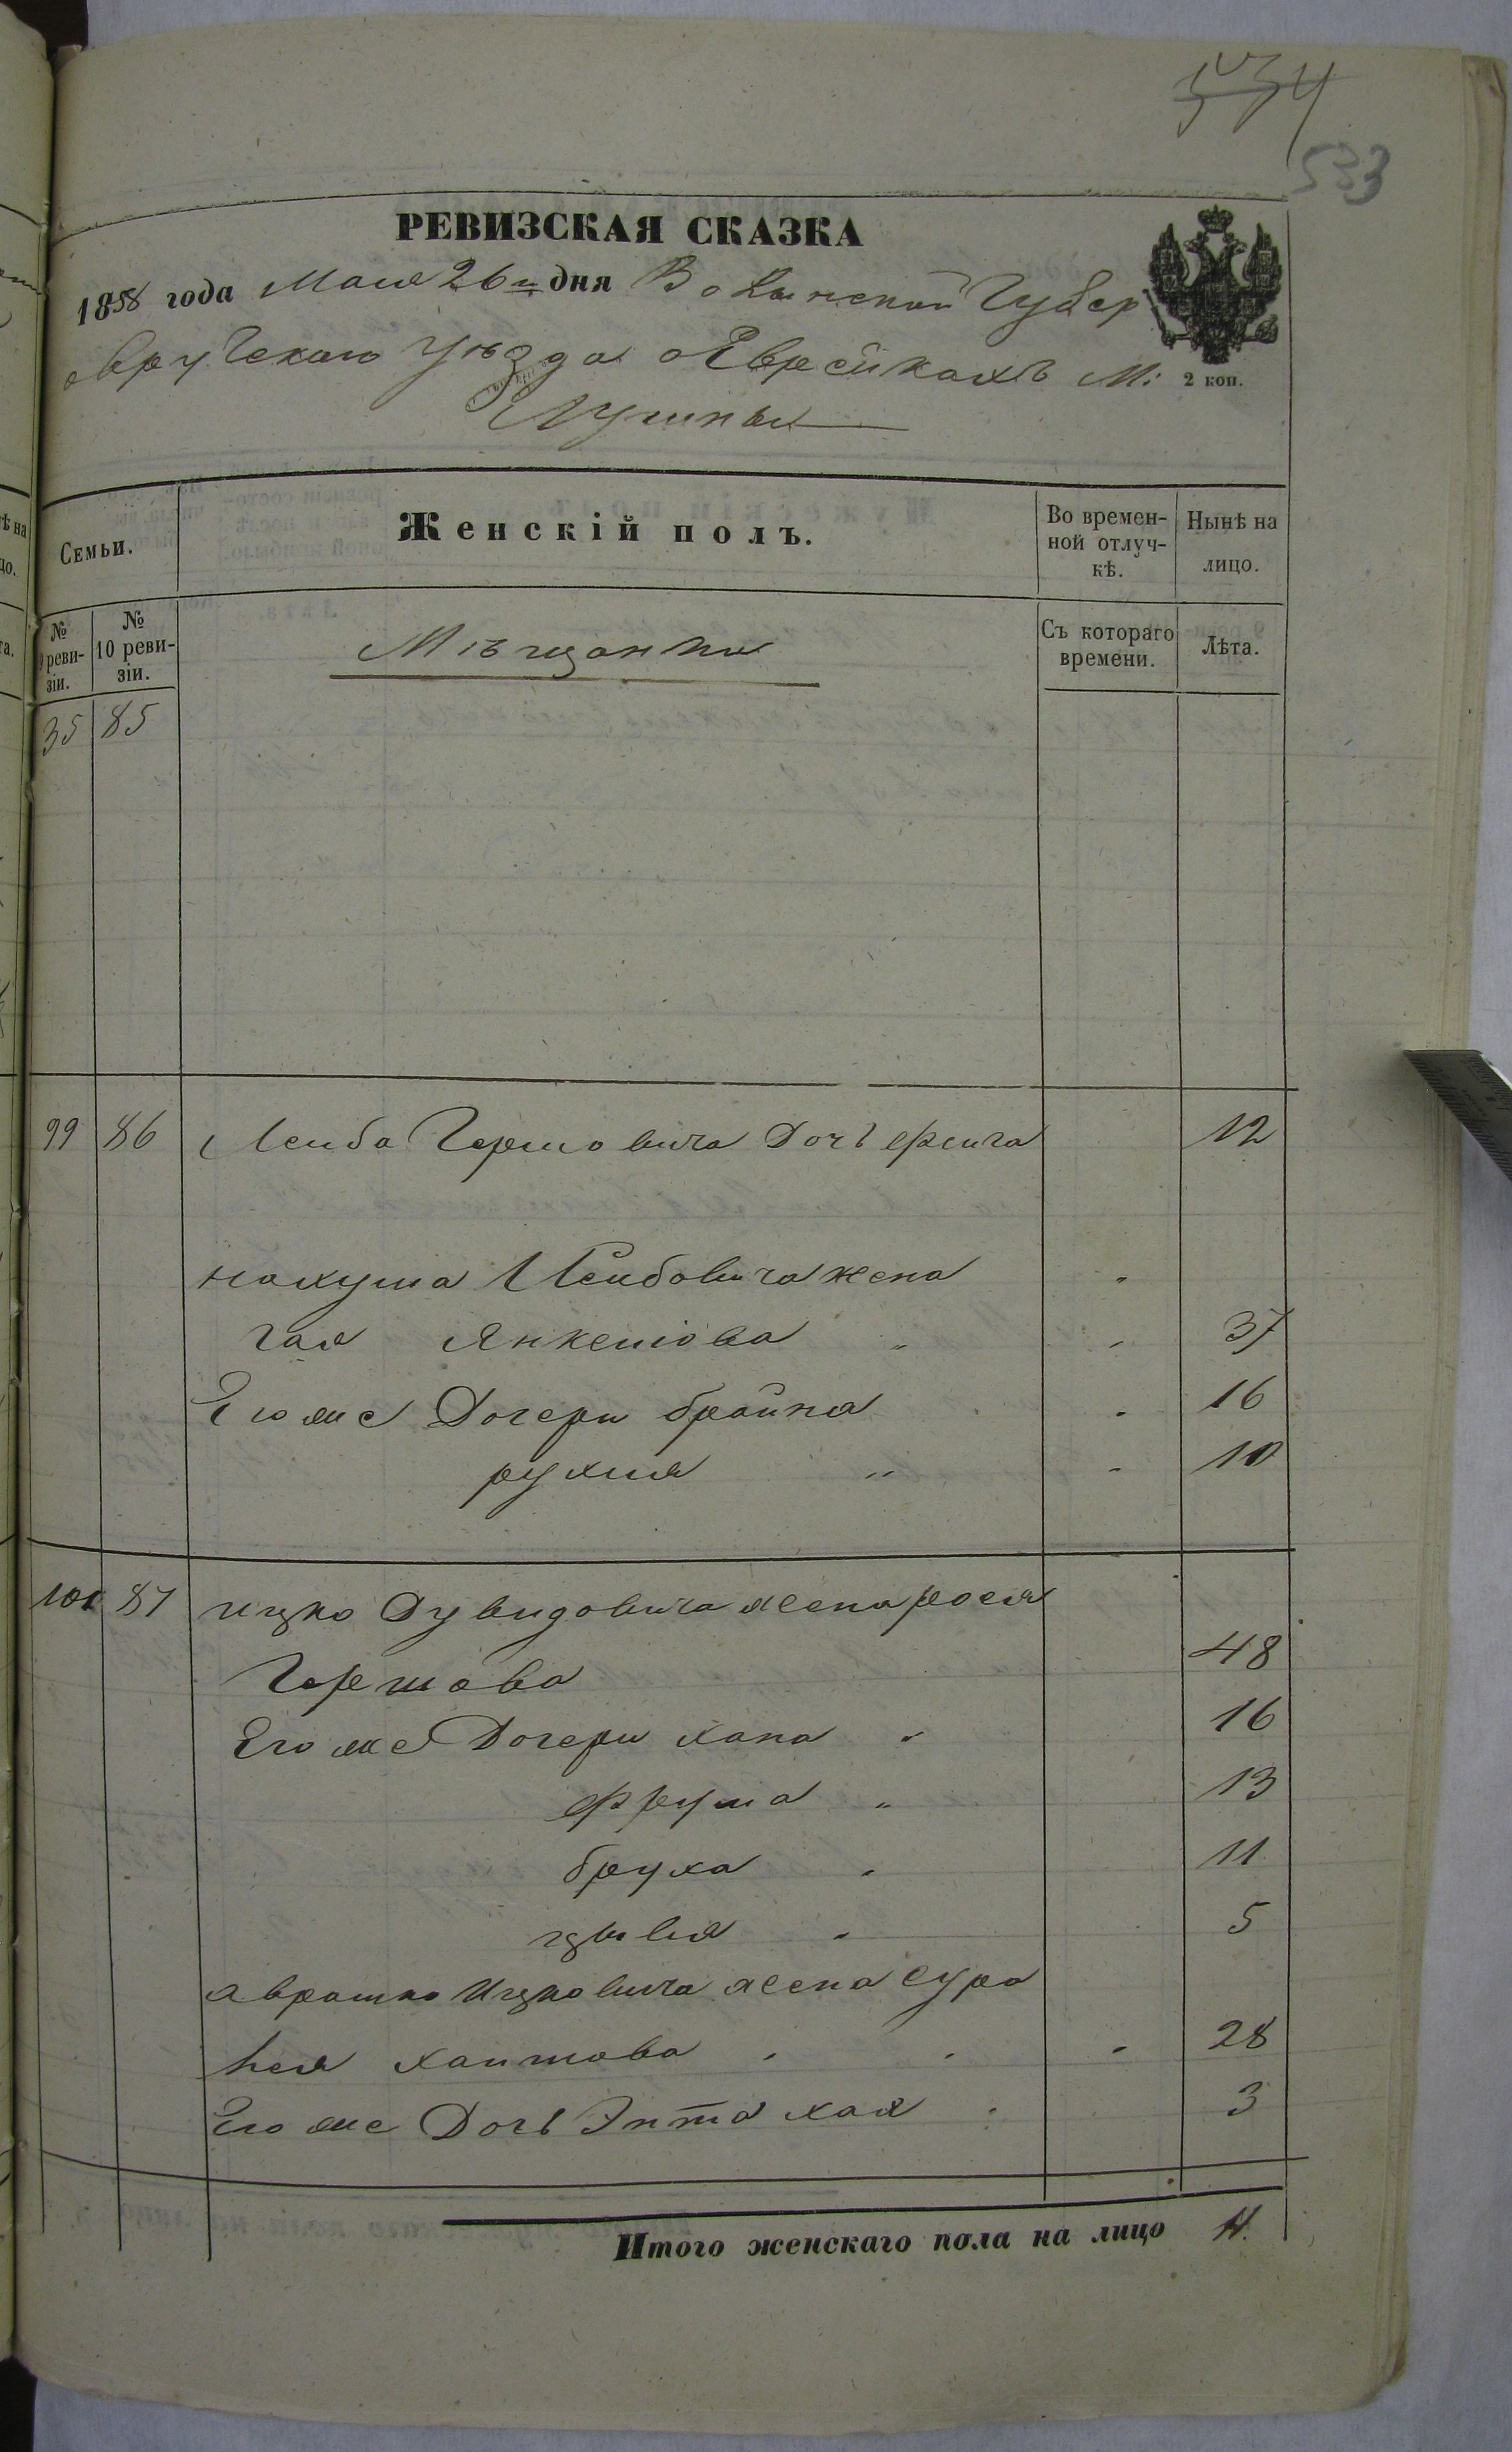 534
533
РЕВИЗСКАЯ СКАЗКА
1858 года Мая 26го дня Волынской Губер
Овручскаго уѣзда о Еврейкахъ М:
2 коп.
Лугины
Семьи.
Женскій полъ.
Во времен-
ной отлуч-
кѣ.
Нынѣ на
лицо.
№
реви-
зіи.
№
10 реви-
зіи.
Мѣщанки
Съ котораго
времени.
Лѣта.
35 85
99 86 Лейба Гершовича Дочь Фейга 12
Нахума Лейбовича жена
Хая Янкелiова " 37
Его же Дочери брайна 16
рухля " 10
101 87 ицко Дувидовича жена рося
Гершова 48
Его же Дочери хана " 16
Фрума " 13
бруха " 11
цывья " 5
аврашко Ицковича жена сура
лея хаимова 28
Его же Дочь Энта хая 3
Итого женскаго пола на лицо 11.